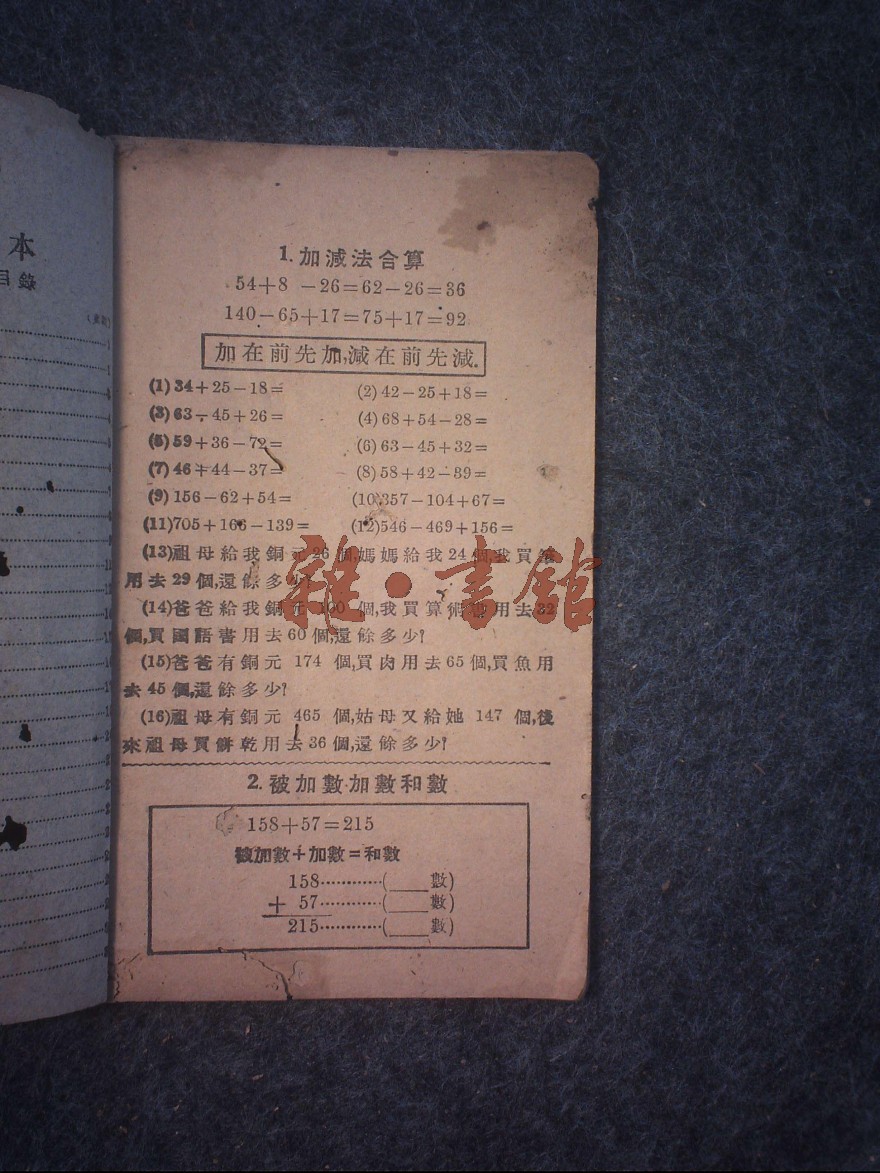 本
目錄
1. 加減法合算
54+8 -26=62-26=36
140-65+17=75+17=92
加在前先加,減在前先減.
(1) 34+25-18=
(2) 42-25+18=
(3) 63-45+26=
(4) 68+54-28=
(5) 59+36-72=
(6) 63-45+32=
(7) 46+44-37=
(8) 58+42-39=
(9) 156-62+54=
(10)357-104+67=
(11)705+166-139=
(12)546-469+156=
(13)祖母給我銅元26個,媽媽給我24個,我買筆
用去29個,還餘多少?
(14)爸爸給我銅元100個,我買算術書用去32
個,買國語書用去60個,還餘多少?
(15)爸爸有銅元 174 個,買肉用去65個,買魚用
去45個,還餘多少?
(16)祖母有銅元 465 個,姑母又給她 147 個,後
來祖母買餅乾用去36個,還餘多少?
2. 被加數·加數和數
158+57=215
被加數+加數=和數
158…………(____數)
+ 57…………(____數)
215…………(____數)
雜·書館